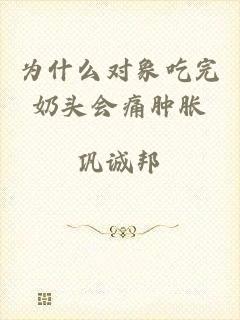 为什么对象吃完
奶头会痛肿胀
巩诚邦